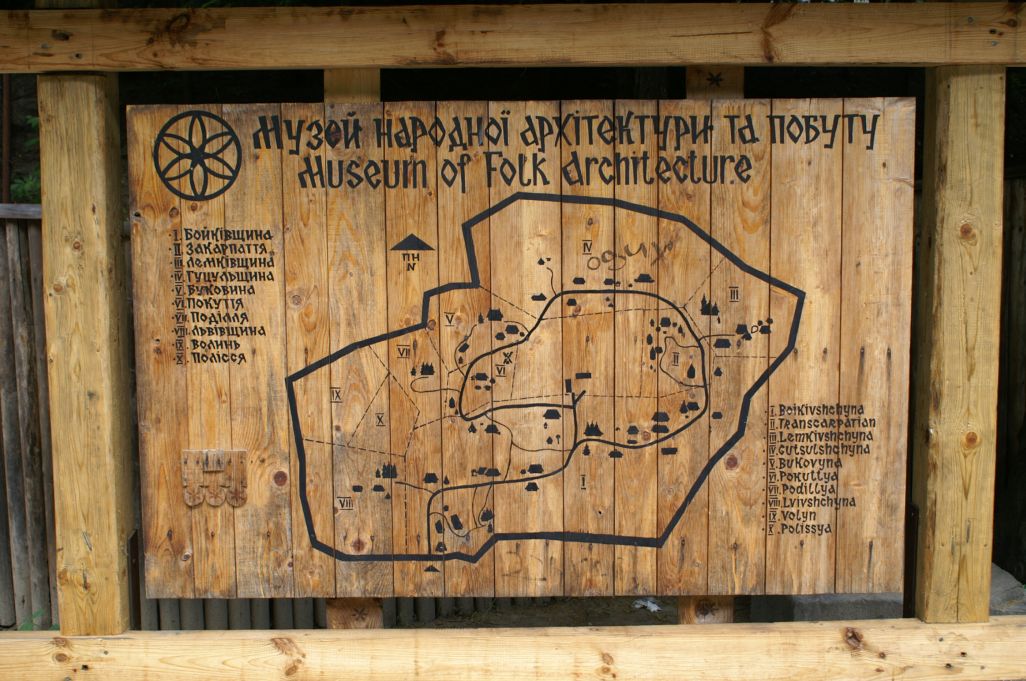 Музей народної архітектури та побуту
Museum of Folk Architecture
I. Бойківщина
II. Закарпаття
III. Лемківщина
IV. Гуцульщина
V. Буковина
VI. Покуття
VII. Поділля
VIII. Львівщина
IX. Волинь
X. Полісся
ПН
N
IV
III
V
VII
II
VI
IX
X
I
VIII
I. Boikivshchyna
II. Transcarpatian
III. Lemkivshchyna
IV. Gutsulshchyna
V. Bukovyna
VI. Pokuttya
VII. Podillya
VIII. Lvivshchyna
IX. Volyn
X. Polissya